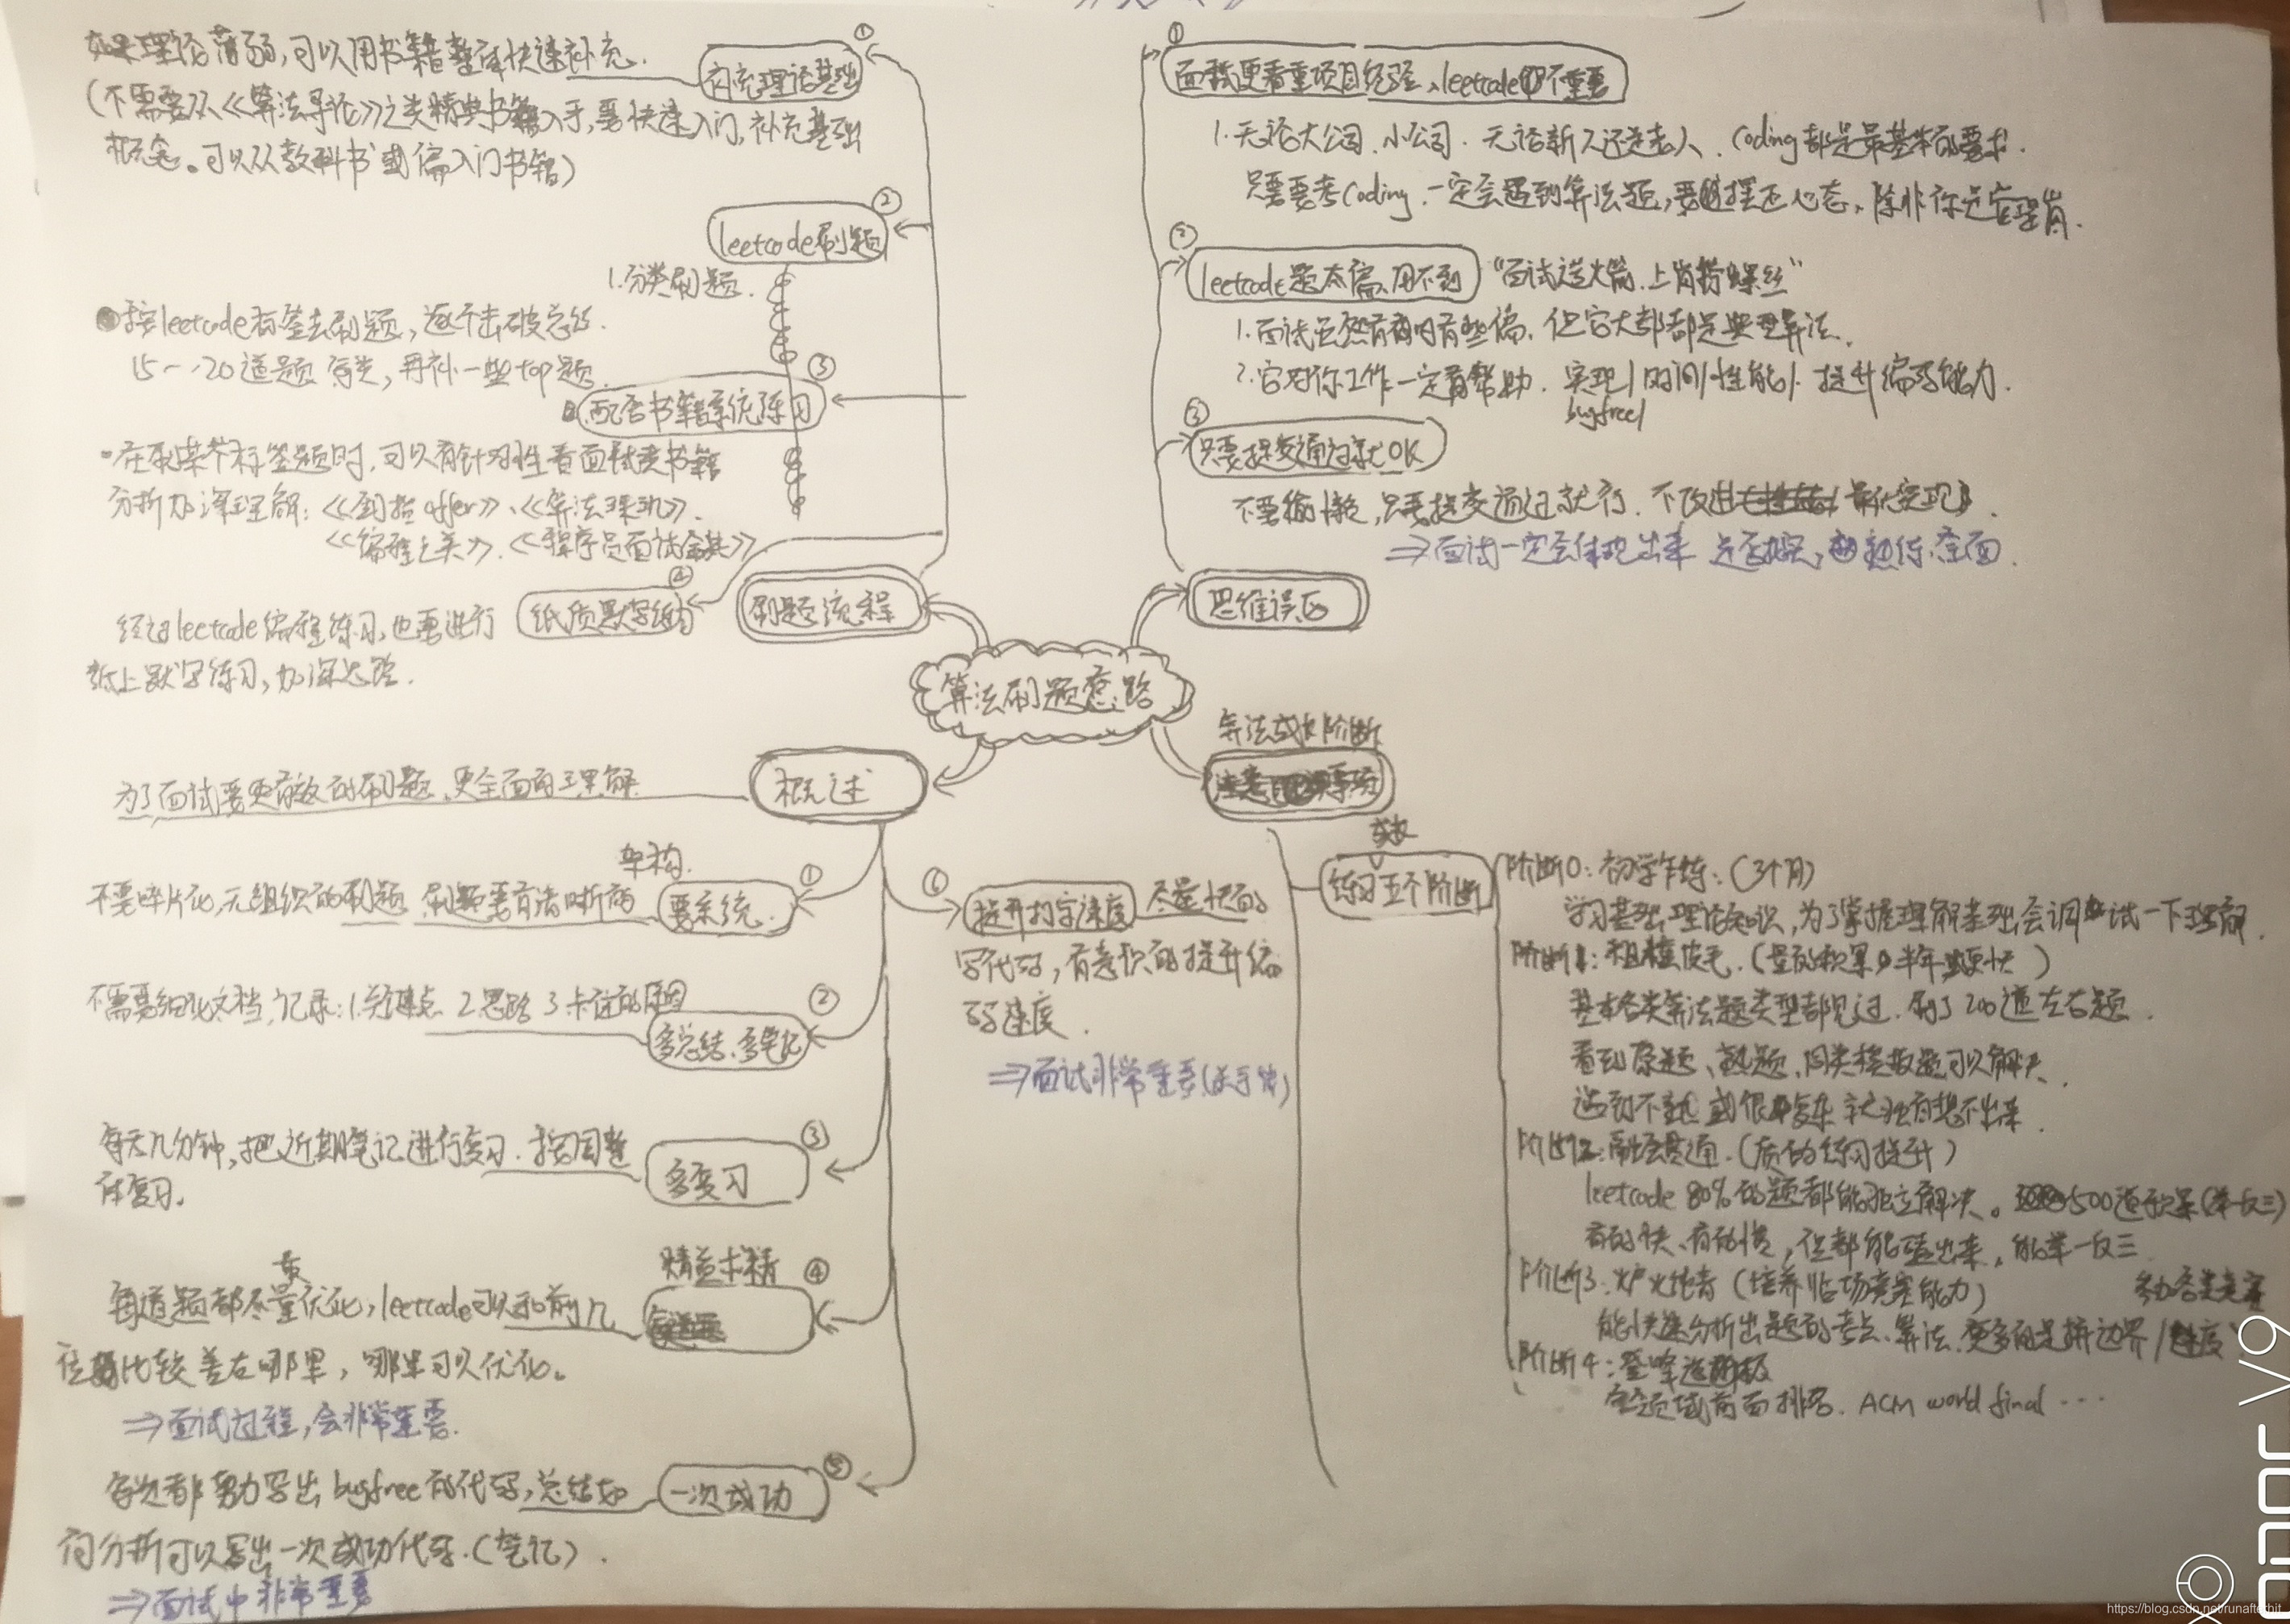 算法刷题意思路
刷题流程
①
补充理论基础
如果理论薄弱,可以用书籍整体快速补充.
(不需要从《算法导论》之类精典书籍入手,要快速入门,补充基础
概念。可以从教科书或偏入门书籍)
②
leetcode刷题
1.分类刷题.
按leetcode标签去刷题,逐个击破总结.
15~20道题每类,再补一些top题.
③
配合书籍系统练习
在刷某个标签题时,可以有针对性看面试类书籍
分析加深理解:《剑指offer》、《算法珠玑》.
《编程之美》.《程序员面试金典》
④
纸质默写练习
经过leetcode编程练习,也要进行
纸上默写练习,加深思路.
思维误区
①
面试更看重项目经验、leetcode刷不重要
1.无论大公司、小公司.无论新人还是老人、Coding都是最基本的要求.
只要要考Coding.一定会遇到算法题,要摆正心态、除非你是管理岗.
②
leetcode题太偏、用不到 “面试造火箭.上岗拧螺丝”
1.面试虽然有的有些偏.但它大部都是典型算法.
2.它对你工作一定有帮助.实现/时间/性能/.提升编码能力.
bugfree/
③
只要提交通过就OK
不要偷懒,只要提交通过就行.不改进 最优实现.
⇒面试一定会体现出来 是否扎实,熟练、全面.
概述
为了面试要更有效的刷题、更全面的理解
①
要系统.
架构.
不要碎片化,无组织的刷题 刷题要有清晰的
②
多总结、多笔记
不需要细化文档,记录:1.关键点 2.思路 3.卡住的原因
③
多复习
每天几分钟,把近期笔记进行复习.按周整
体复习.
④
精益求精
最
每道题都尽量优化,leetcode可以和前几
位比较差在哪里,哪里可以优化。
⇒面试过程,会非常重要.
⑤
一次成功
每次都努力写出bugfree的代码,总结如
何分析可以写出一次成功代码.(笔记).
⇒面试中非常重要
⑥
提升打字速度 尽量快的
写代码,有意识的提升编
码速度.
⇒面试非常重要(关于快)
算法成长阶断
注意事项
练习五个阶断
阶断0:初学乍练:(3个月)
学习基础理论知识,为了掌握理解基础会调试一下理解.
阶断1:粗糙皮毛.(量的积累,半年更快)
基本各类算法题类型都见过.刷了200道左右题.
看到原题、熟题、同类模板题可以解决.
遇到不熟或很复杂就独有想不出来.
阶断2:融会贯通.(质的练习提升)
leetcode 80%的题都能独立解决。500道积累(举一反三)
有的快、有的慢,但都能磕出来,能举一反三.
阶断3:炉火纯青(培养临场竞赛能力) 参加各类竞赛
能快速分析出题的考点、算法.更多的是拼边界/速度
阶断4:登峰造极
全领域前面排名.ACM world final ...
HONOR V9
https://blog.csdn.net/runafterhit